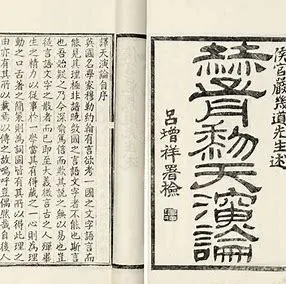 侯官嚴幾道先生述
赫胥黎天演論
呂增祥署檢
譯天演論自序
英國名學家穆勒約翰有言欲考一國之文字語言而
能見其理極非諳曉數國之言語文字者不能也斯言
也吾始疑之乃今深喻篤信而歎其說之無以易也豈
徒言語文字之散者而已即至大義微言古之人殫畢
生之精力以從事於一學當其有得藏之一心則為理
動之口舌著之簡策則為詞固皆有其所以得此理之
由亦有其所以載焉以傳之故嗚呼豈偶然哉自後人